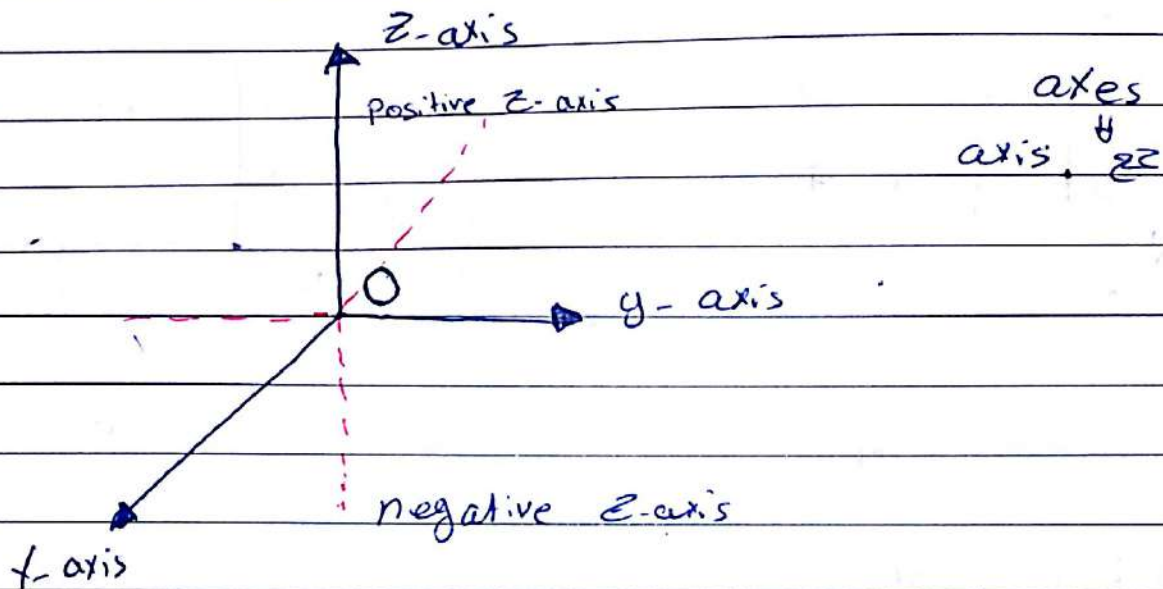 Z-axis
positive Z-axis
axes
axis
O
y-axis
negative Z-axis
x-axis